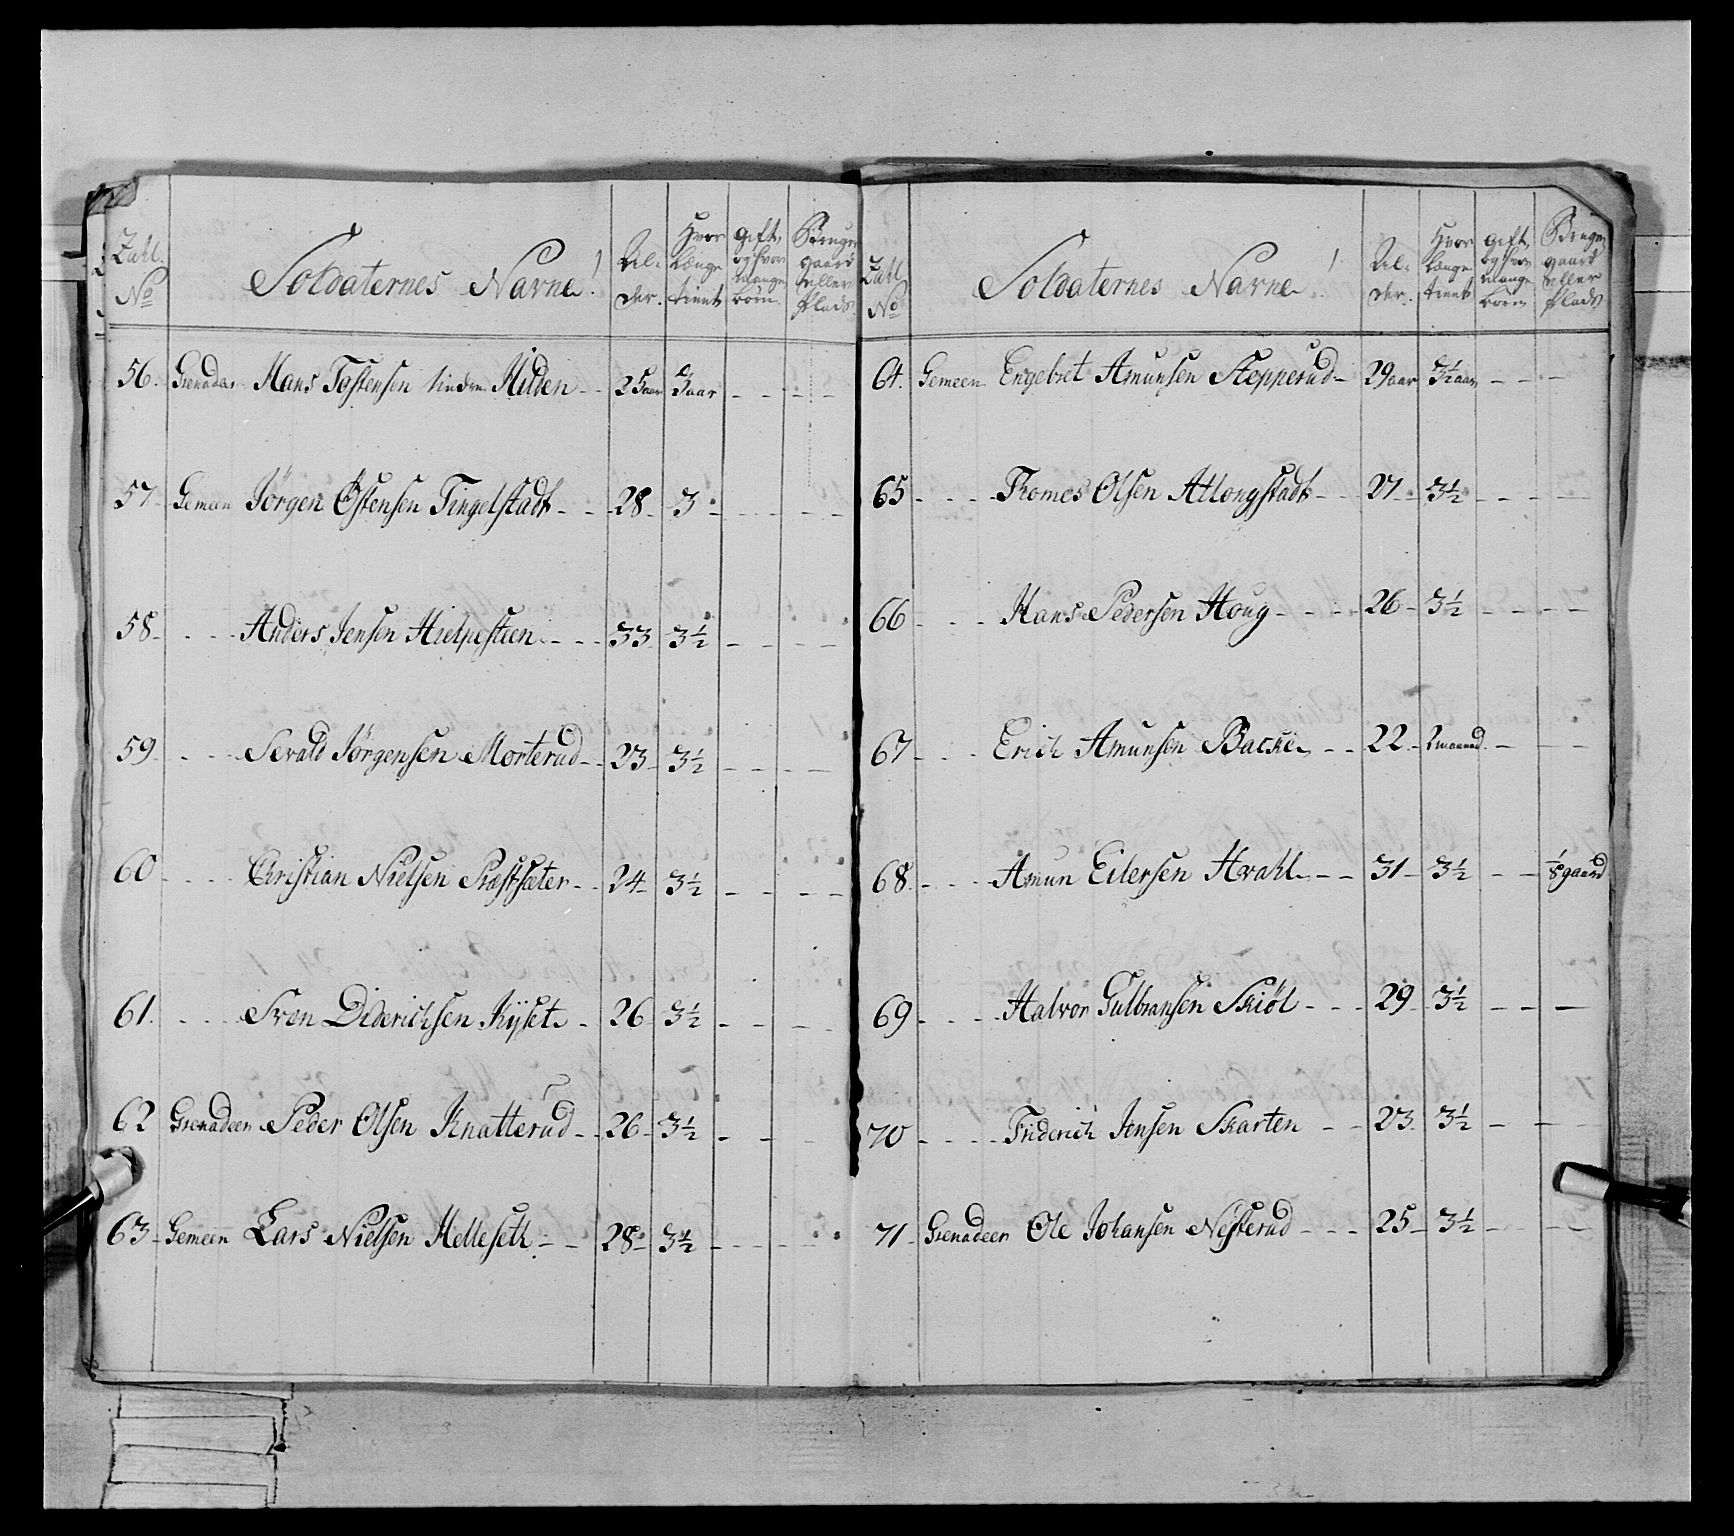 Zahl. No
Soldaternes Navne!
Al- der.
Hvor længe tient
Gift, og hvor mange börn
Bruger gaard eller Plads
56. Grenadeer Hans Tostensen Hilden - 25 aar 5 aar - - - -
57 Gemeen Jörgen Östensen Tingelstadt - - 28 - 3 - - - -
58 - - - - Anders Jensen Hielpestien - - - 33 3½ - - - -
59 - - - - Sevald Jörgensen Morterud - - 23 - 3½ - - - -
60 - - - - Christian Nielsen Stastsæter - - 24 3½ - - - -
61. - - - Sven Diderichsen Kyset - - 26 3½ - - - -
62 Grenadeer Peder Olsen Knatterud - - 26 - 3½ - - -
63 - Gemeen Lars Nielsen Helleseth - - 28 - 3½ - - - -
Zahl No
Soldaternes Navne!
Al- der.
Hvor længe tient
Gift, og hvor mange börn
Bruger gaard eller Plads
64. Gemeen Engebret Amunsen Stepperud - 29 aar 3½ aar - - -
65 - - - - Thomes Olsen Allongstadt - - 27 - 3½ - - - -
66 - - - - Hans Pedersen Houg - - - - 26 - 3½ - - - -
67 - - - - Erich Amunsen Backe - - - 22 - 2 maaned - - -
68 - - - - Amun Eilersen Hvahl - - - 31 - 3½ - - ⅛ gaard
69 - - - - Halvor Gulbransen Skiöl - - - 29 3½ - - -
70 - - - - Friderich Jensen Skarten - - 23. 3½ - - -
71 - Grenadeer Ole Johansen Nesterud - - - 25 - 3½ - - - -